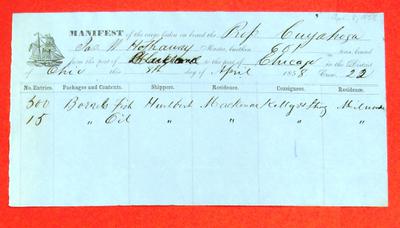 Apr. 8, 1858
MANIFEST of the cargo laden on board the Prop Cuyahoga
Jas W Hathaway Master, burthen
tons, bound
from the port of Cleveland to the port of Chicago in the District
of Ohio this 8th day of April 1858 Crew, 22
No. Entries. Packages and Contents. Shippers. Residence. Consignees. Residence.
500 Barrels fish Hurlbert Mackinac Kellogg & Milwaukee
15 " Oil " " " "